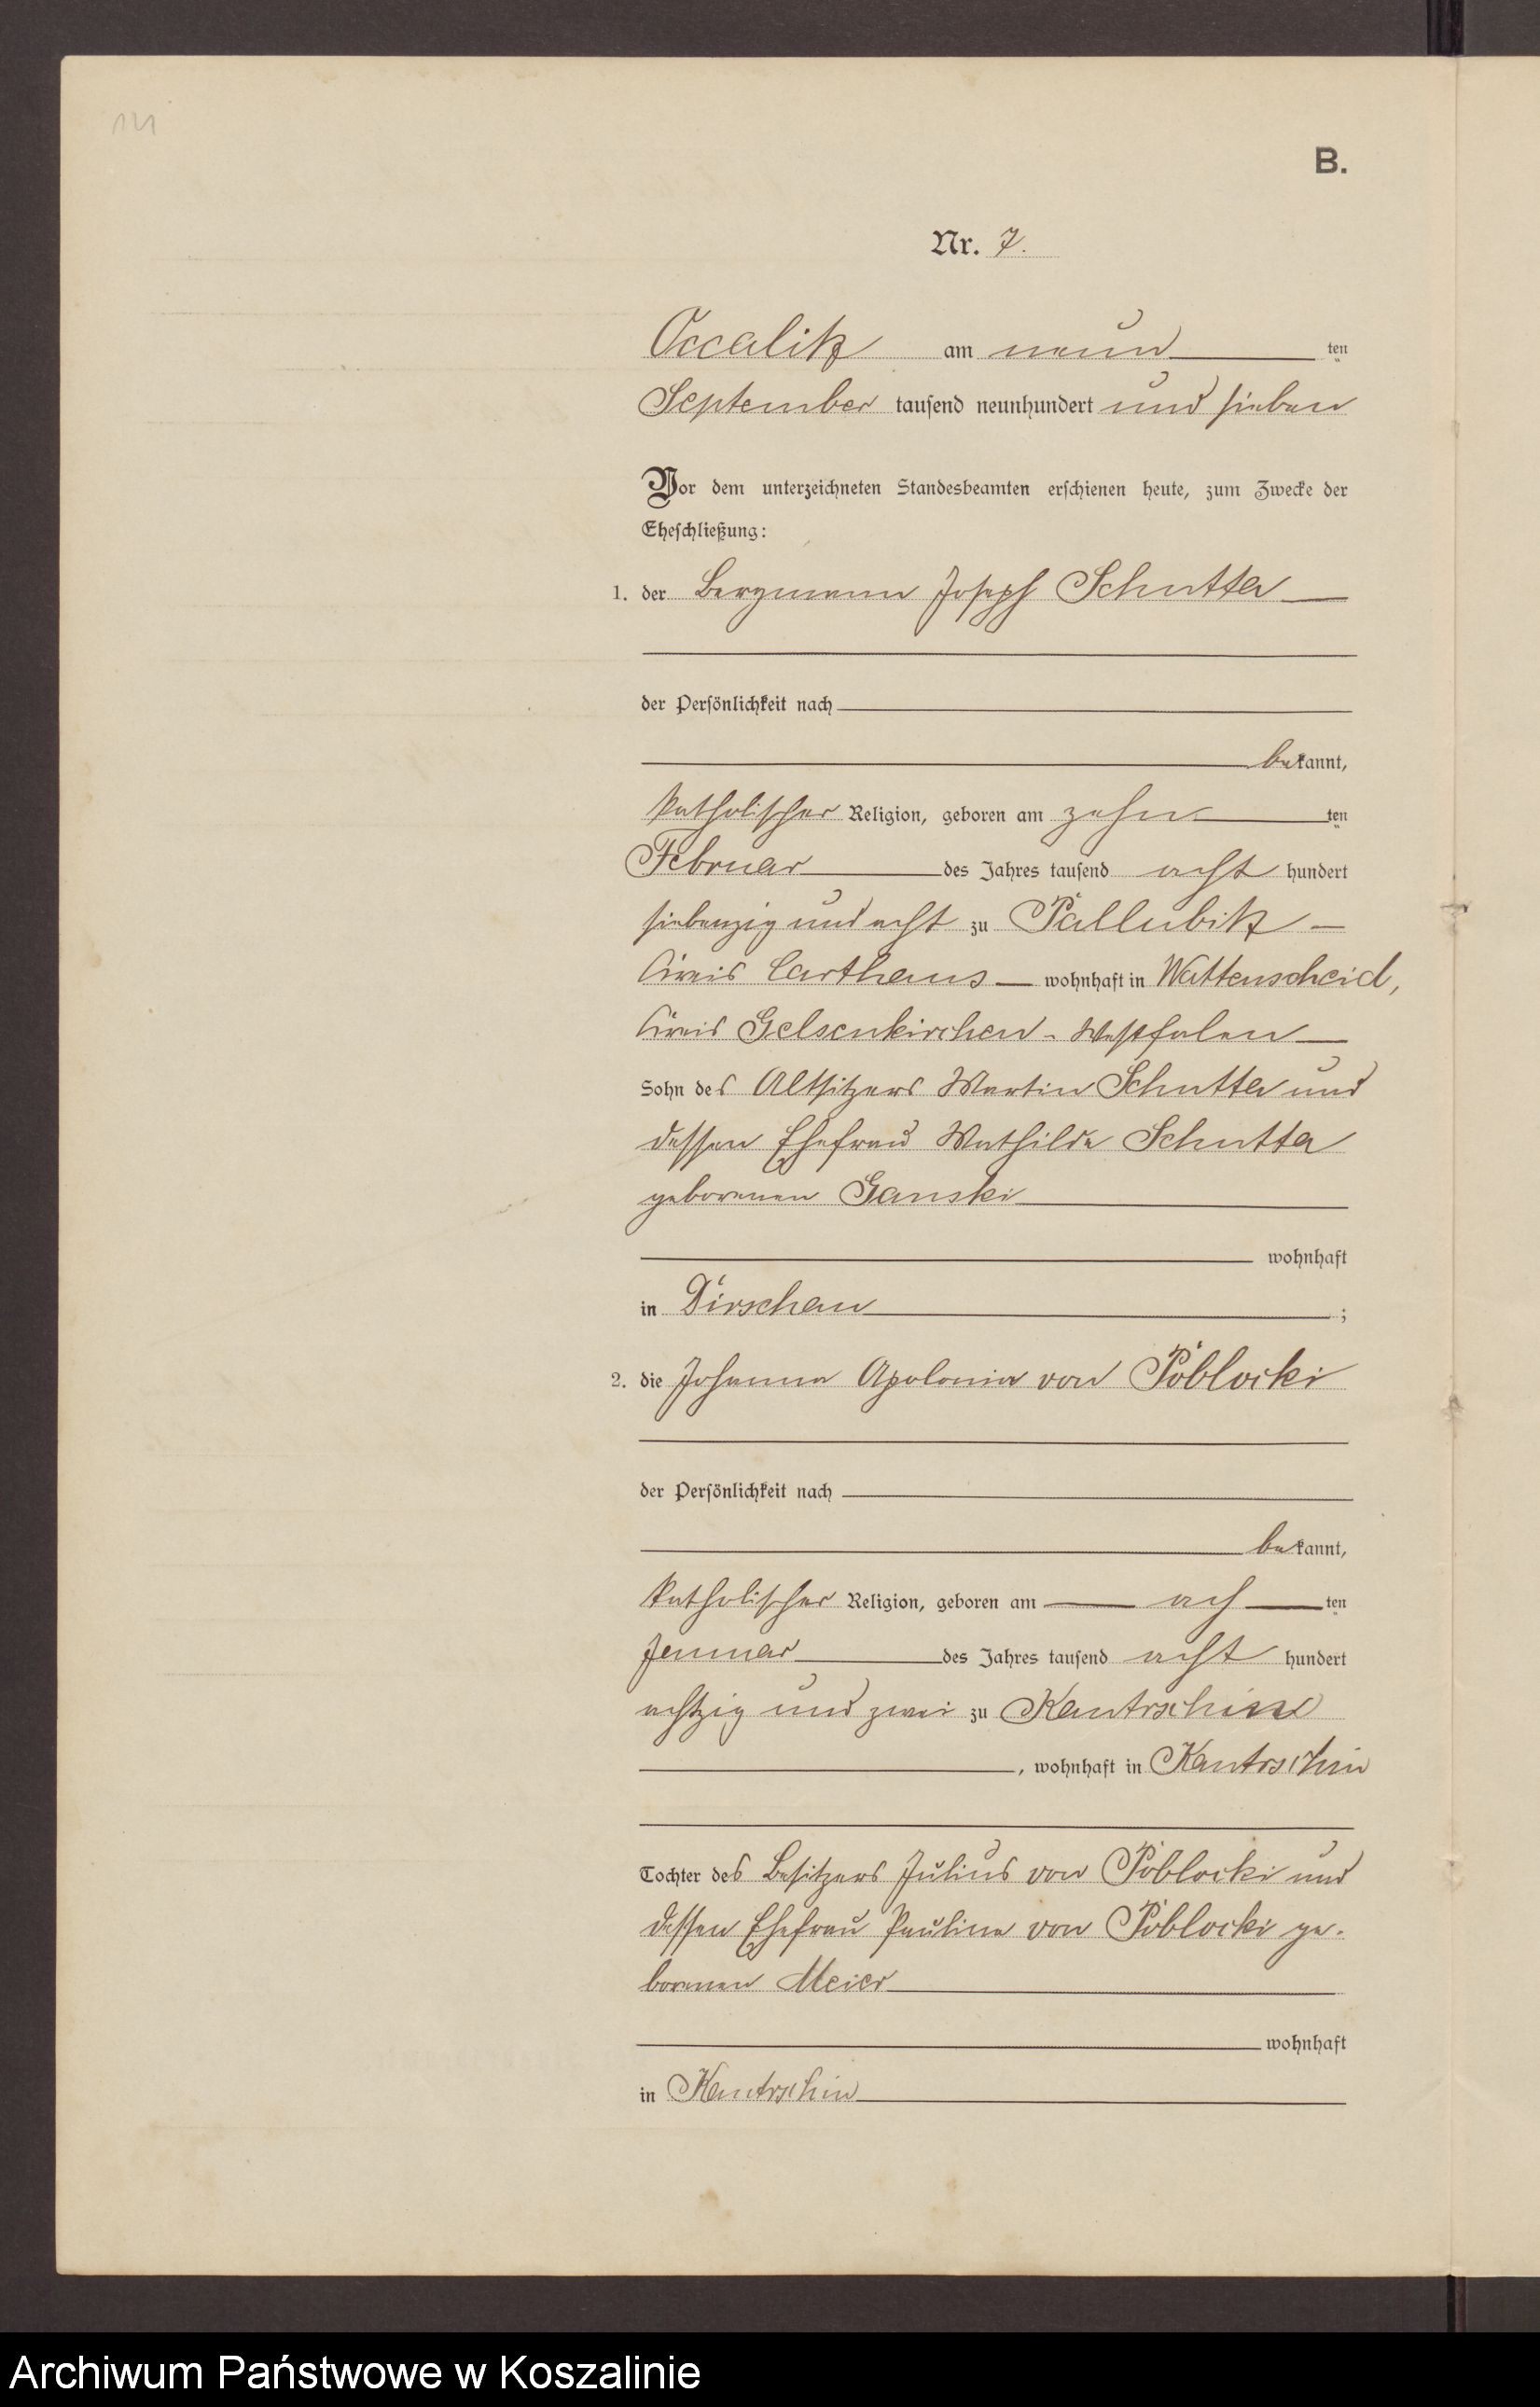 141
B.
Nr. 7.
Occalitz am neun ten
September tausend neunhundert und sieben
Vor dem unterzeichneten Standesbeamten erschienen heute, zum Zwecke der
Eheschließung:
1. der Bergmann Joseph Schutta
der Persönlichkeit nach
bekannt,
katholischer Religion, geboren am zehn ten
Februar des Jahres tausend acht hundert
siebenzig und acht zu Pallubitz
Kreis Carthaus wohnhaft in Wattenscheid,
Kreis Gelsenkirchen - Westfalen
Sohn des Altsitzers Martin Schutta und
dessen Ehefrau Mathilde Schutta
geborenen Ganski
wohnhaft
in Dirschau ;
2. die Johanna Apolonia von Poblocki
der Persönlichkeit nach
bekannt,
katholischer Religion, geboren am ach ten
Januar des Jahres tausend acht hundert
achtzig und zwei zu Kantrschin
, wohnhaft in Kantrschin
Tochter des Besitzers Julius von Poblocki und
dessen Ehefrau Pauline von Poblocki ge-
borenen Meier
wohnhaft
in Kantrschin
Archiwum Państwowe w Koszalinie